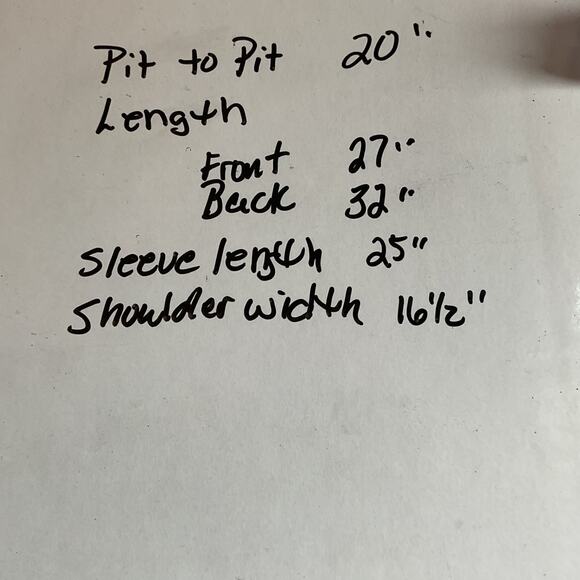 Pit to Pit 20"
Length
Front 27"
Back 32"
Sleeve length 25"
Shoulder width 16 1/2"